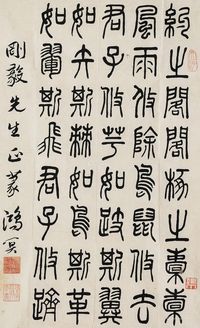 約之閣閣椓之橐橐
風雨攸除鳥鼠攸去
君子攸芋如跂斯翼
如矢斯棘如鳥斯革
如翬斯飛君子攸躋
剛毅先生正篆 鴻